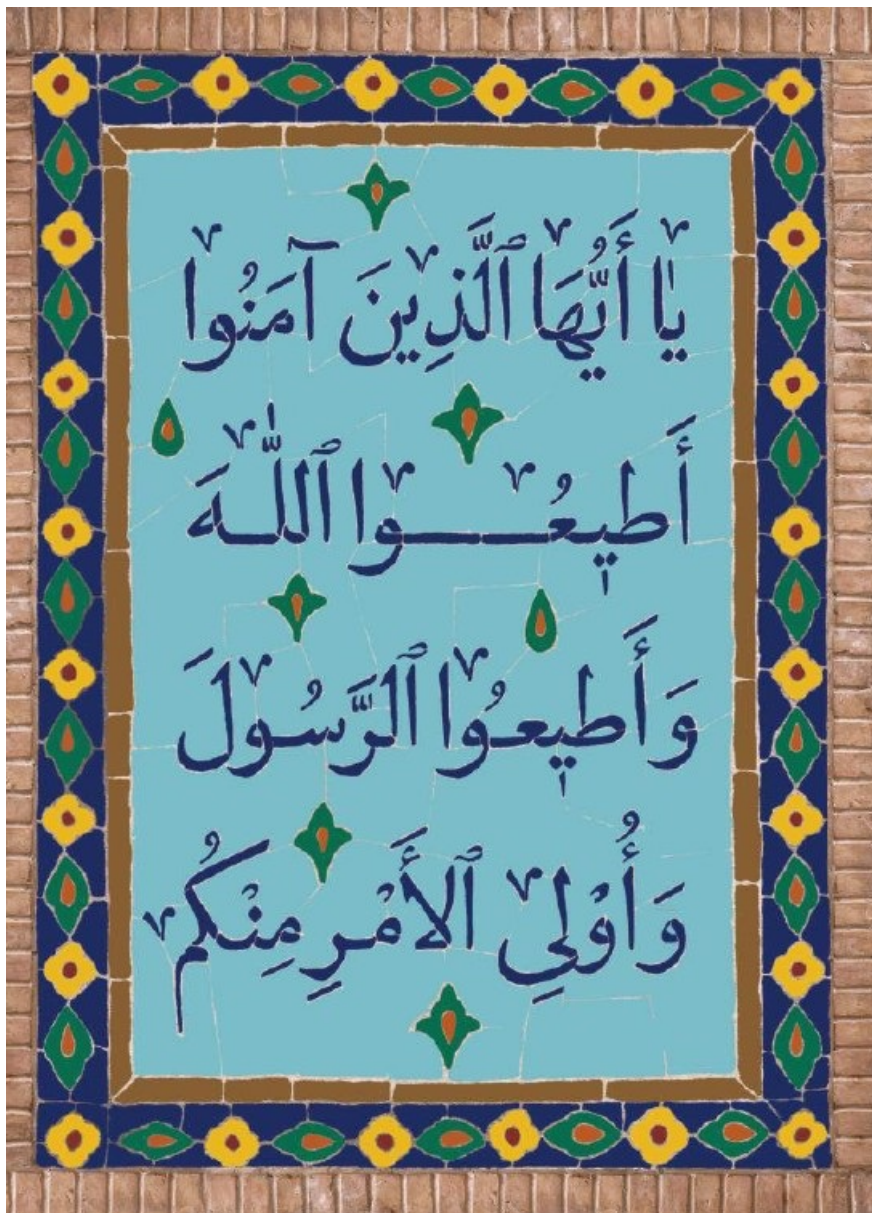 يَا أَيُّهَا ٱلَّذِينَ آمَنُوا
أَطِيعُوا ٱللَّهَ
وَأَطِيعُوا ٱلرَّسُولَ
وَأُوْلِي ٱلأَمْرِ مِنْكُم